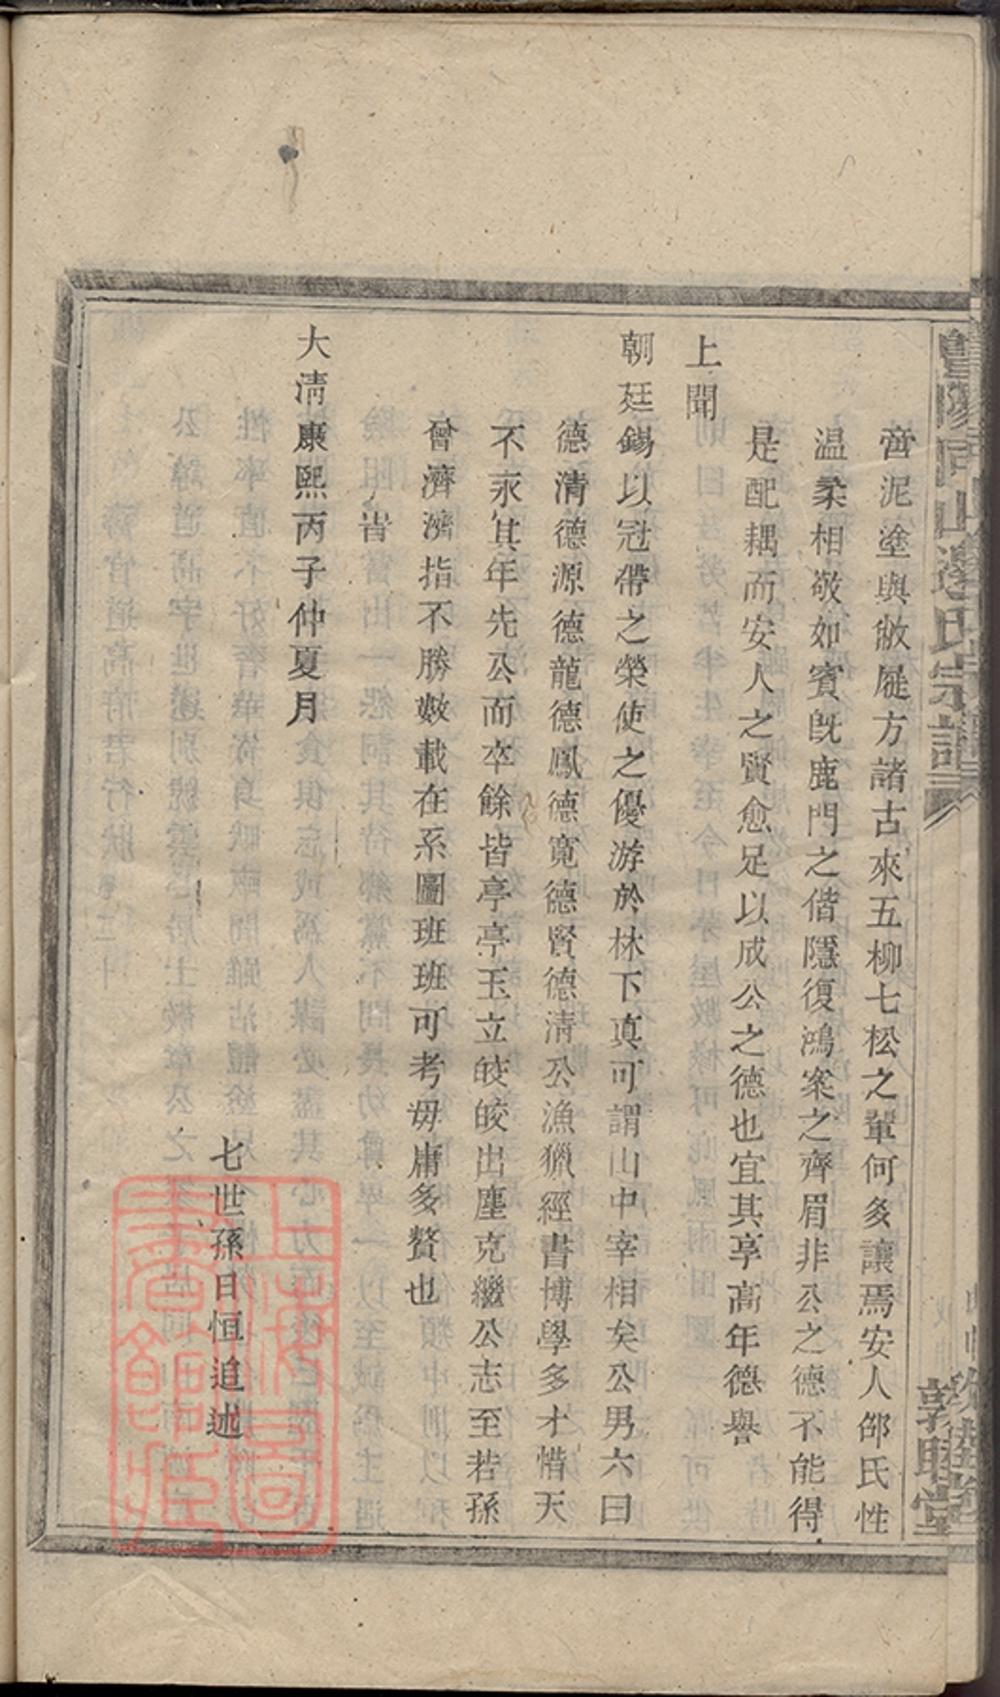 啻泥塗與敝屣方諸古來五柳七松之輩何多讓焉安人邵氏性
温柔相敬如賓旣鹿門之偕隱復鴻案之齊眉非公之德不能得
是配耦而安人之賢愈足以成公之德也宜其享高年德譽
上聞
朝廷錫以冠帶之榮使之優游於林下真可謂山中宰相矣公男六曰
德清德源德龍德鳳德寬德賢德清公漁獵經書博學多才惜天
不永其年先公而卒餘皆亭亭玉立皎皎出塵克繼公志至若孫
曾濟濟指不勝數載在系圖班班可考毋庸多贅也
旹
大清康熙丙子仲夏月
七世孫日恒追述
上海圖書館藏